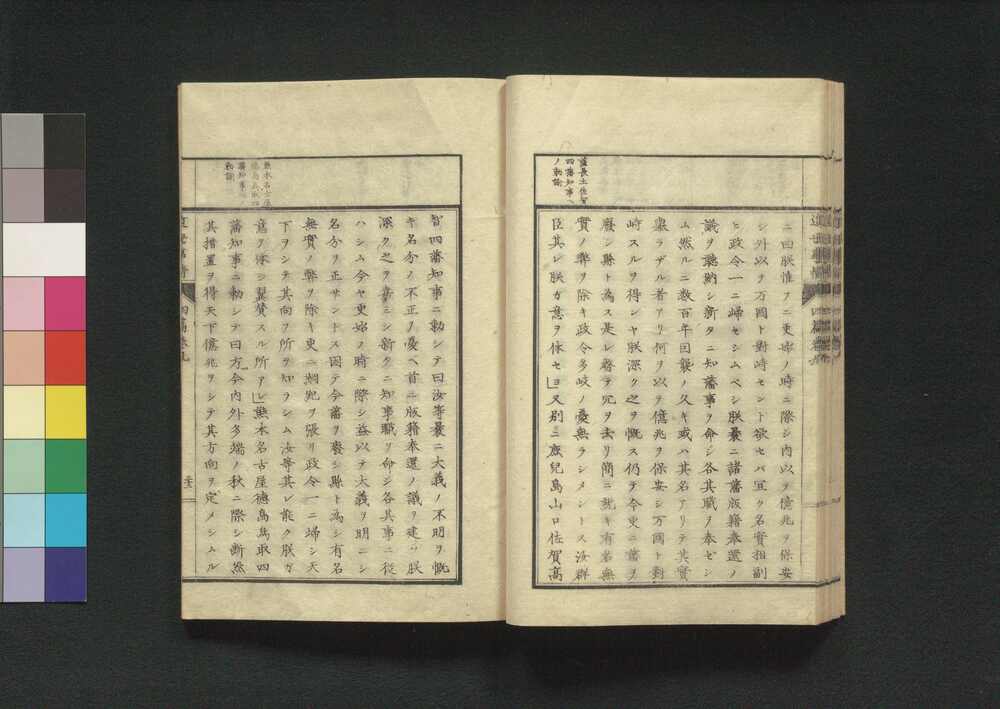 薩長土佐賀
四藩知事ヘ
ノ勅諭
ニ曰朕惟フニ更始ノ時ニ際シ内以テ億兆ヲ保安
シ外以テ万國ト對峙セント欲セバ宜ク名實相副
ヒ政令一ニ歸セシムベシ朕曩ニ諸藩版籍奉還ノ
議ヲ聽納シ新タニ知藩事ヲ命シ各其職ヲ奉ゼシ
ム然ルニ数百年因襲ノ久キ或ハ其名アリテ其實
擧ラザル者アリ何ヲ以テ億兆ヲ保安シ万國ト對
峙スルヲ得ンヤ朕深ク之ヲ慨ス仍テ今更ニ藩ヲ
廢シ縣ト為ス是レ務テ冗ヲ去リ簡ニ就キ有名無
實ノ弊ヲ除キ政令多岐ノ憂無ラシメントス汝群
臣其レ朕ガ意ヲ体セヨ」又別ニ鹿兒島山口佐賀高
近世事情
四篇卷九
熊本名古屋
徳島鳥取四
藩知事ヘノ
勅諭
智四藩知事ニ勅シテ曰汝等曩ニ大義ノ不明ヲ慨
キ名分ノ不正ヲ憂ヘ首ニ版籍奉還ノ議ヲ建ツ朕
深ク之ヲ嘉ミシ新タニ知事職ヲ命シ各其事ニ從
ハシム今ヤ更始ノ時ニ際シ益以テ大義ヲ明ニシ
名分ヲ正サントス因テ今藩ヲ廢シ縣ト為シ有名
無實ノ弊ヲ除キ更ニ綱紀ヲ張リ政令一ニ歸シ天
下ヲシテ其向フ所ヲ知ラシム汝等其レ能ク朕ガ
意ヲ体シ翼賛スル所アレ」熊本名古屋徳島鳥取四
藩知事ニ勅シテ曰方今内外多端ノ秋ニ際シ断然
其措置ヲ得天下億兆ヲシテ其方向ヲ定メシムル
近世事情
四篇卷九